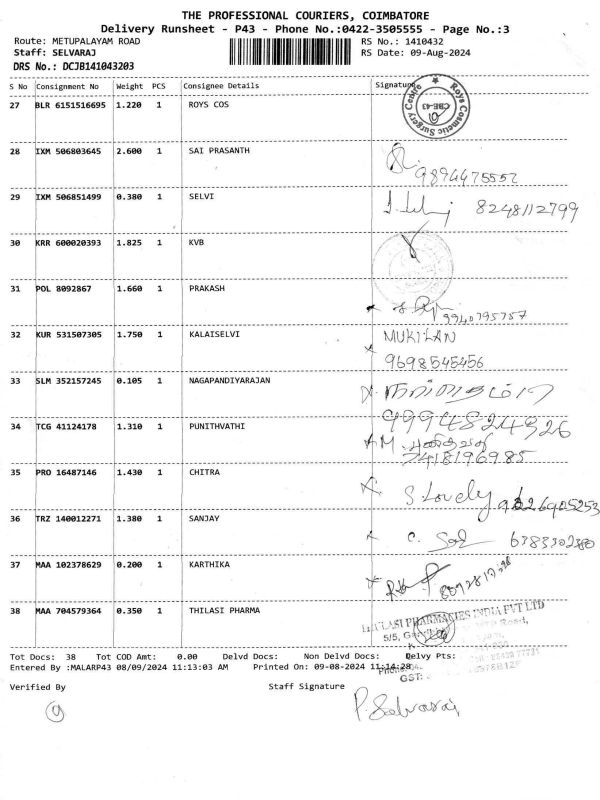 THE PROFESSIONAL COURIERS, COIMBATORE
Delivery Runsheet - P43 - Phone No.:0422-3505555 - Page No.:3
Route: METUPALAYAM ROAD RS No.: 1410432
Staff: SELVARAJ RS Date: 09-Aug-2024
DRS No.: DCJB141043203
S No Consignment No Weight PCS Consignee Details Signature
27 BLR 6151516695 1.220 1 ROYS COS Roys Cosmetic Surgery Centre CBE-43
28 IXM 506803645 2.600 1 SAI PRASANTH
9894475552
29 IXM 506851499 0.380 1 SELVI 8248112799
30 KRR 600020393 1.825 1 KVB
31 POL 8092867 1.660 1 PRAKASH
9940795757
32 KUR 531507305 1.750 1 KALAISELVI MUKILAN
9698545456
33 SLM 352157245 0.105 1 NAGAPANDIYARAJAN
9994824926
34 TCG 41124178 1.310 1 PUNITHVATHI M.
7418196985
35 PRO 16487146 1.430 1 CHITRA S Lovely
36 TRZ 140012271 1.380 1 SANJAY C. 6383302380
37 MAA 102378629 0.200 1 KARTHIKA
38 MAA 704579364 0.350 1 THILASI PHARMA
PHARMACIES INDIA PVT LTD
5/5,
GST:
Tot Docs: 38 Tot COD Amt: 0.00 Delvd Docs: Non Delvd Docs: Delvy Pts:
Entered By :MALARP43 08/09/2024 11:13:03 AM Printed On: 09-08-2024 11:14:28
Verified By Staff Signature
9 P. Selvaraj